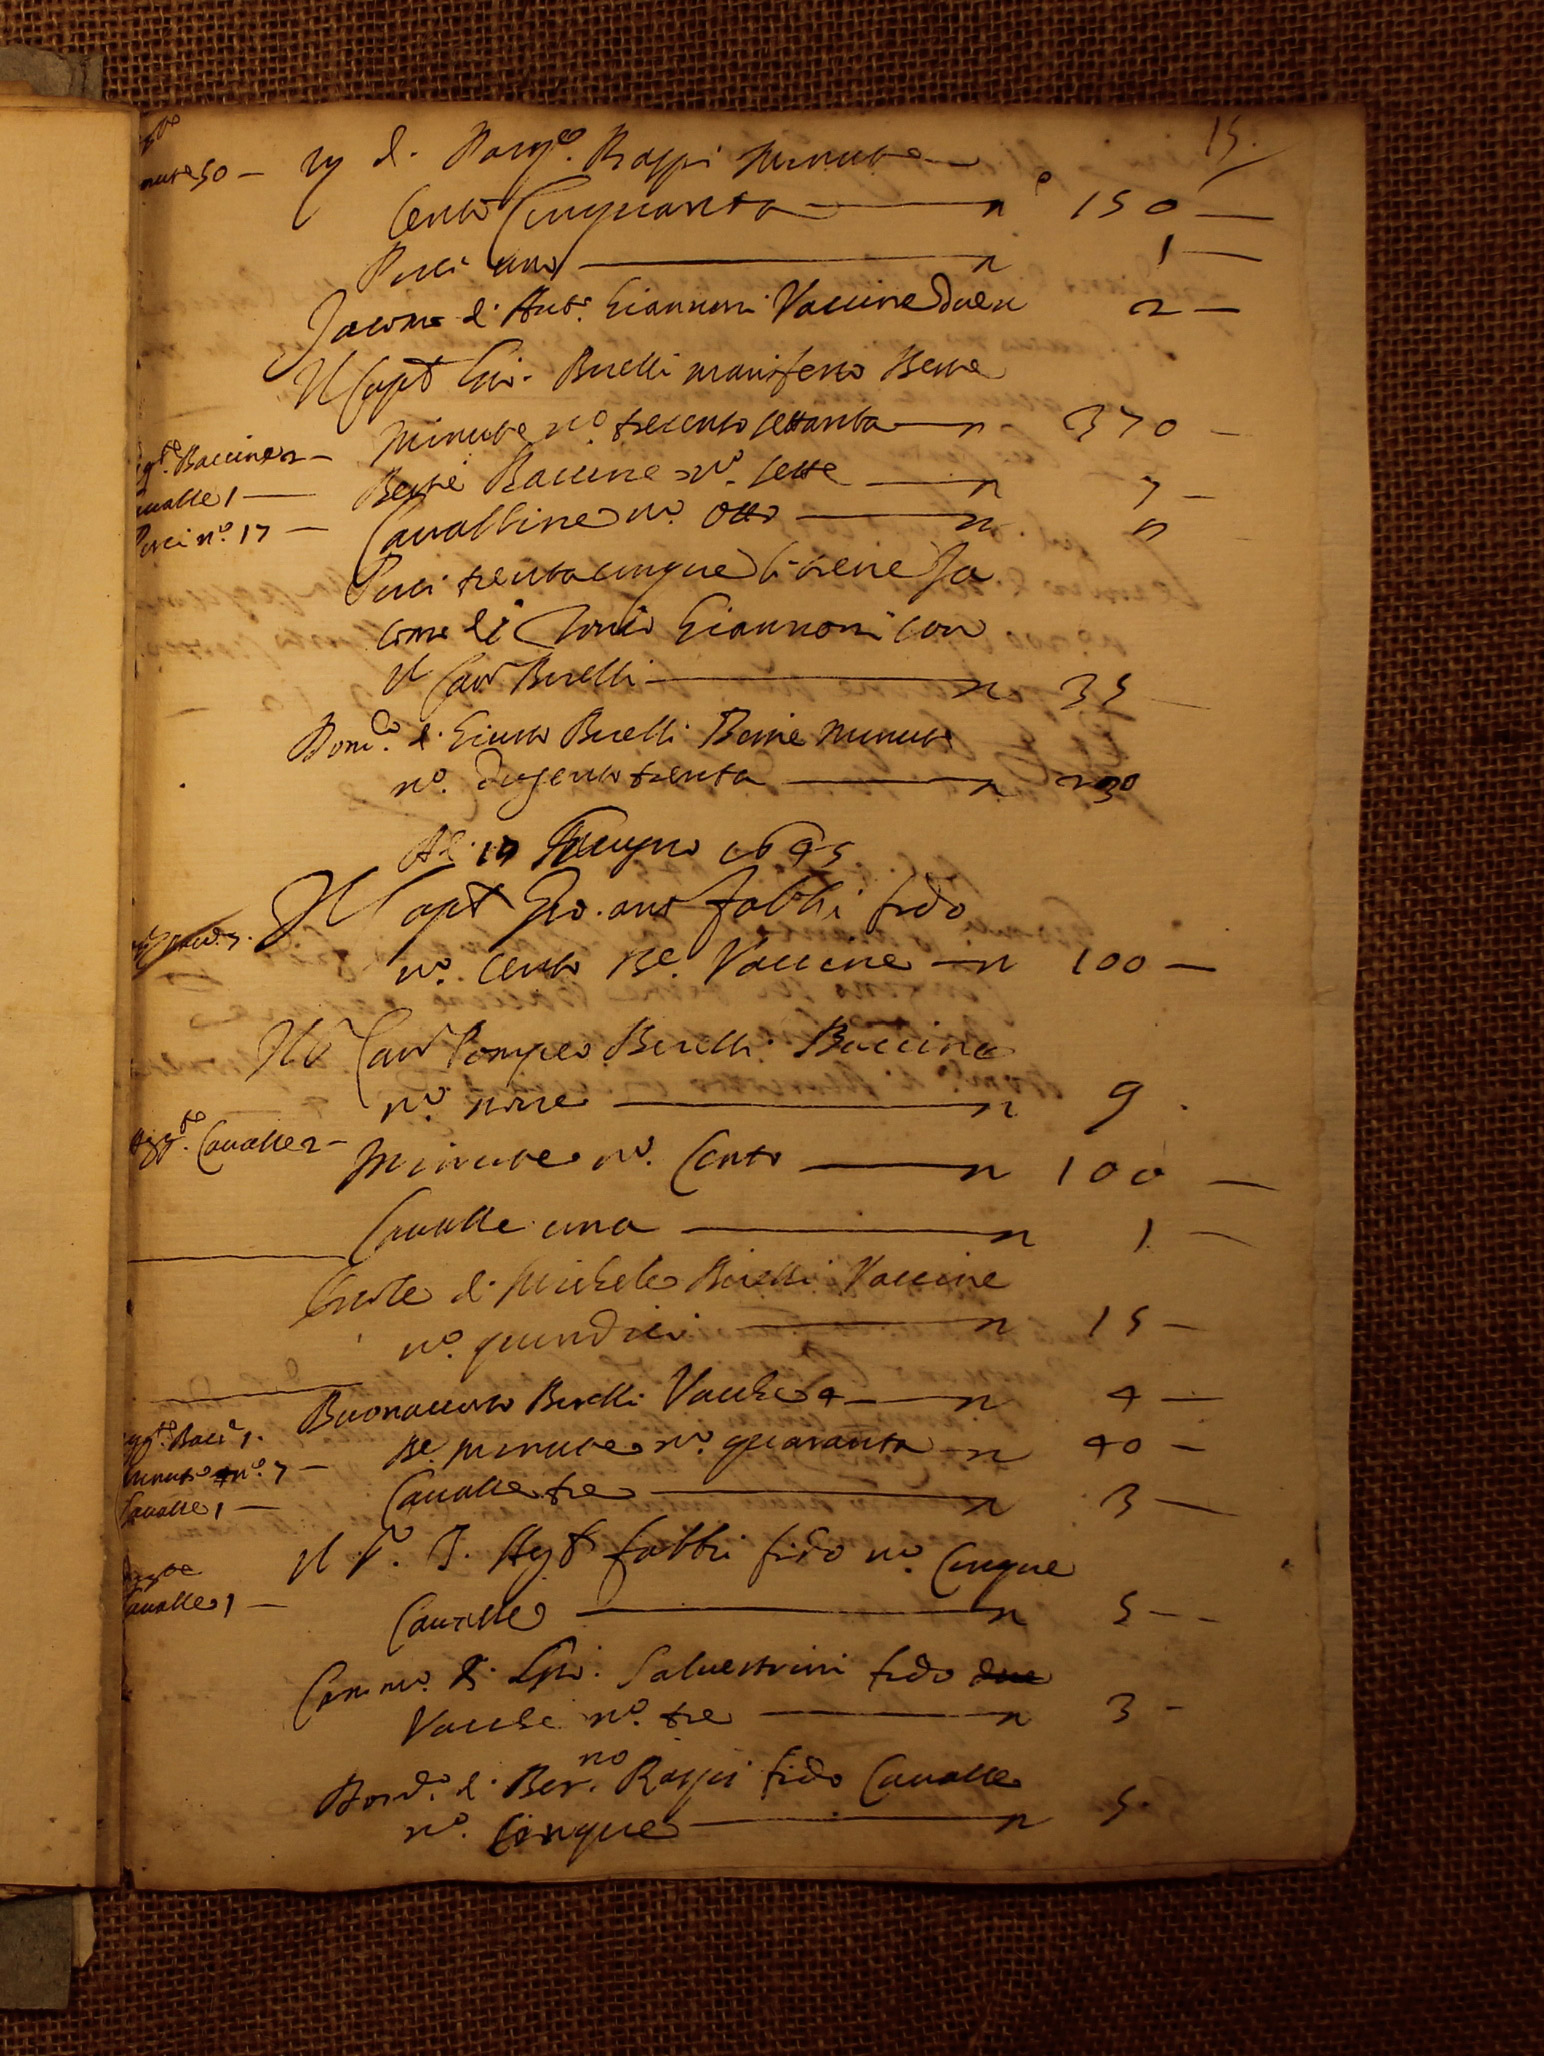 15.
minute 50 — d. Pasq.º Rappi Minute
Cento Cinquanta — nº 150 —
Porci uno — n 1 —
Jacomo d. Ant.º Giannoni Vaccine due n 2 —
Il Capt Gio. Birelli manifesto Bestie
minute nº. trecento settanta — n 370 —
Agg.te Baccine 2 — Bestie Baccine nº. sette — n 7 —
Cavalle 1 — Cavalline nº. otto — n
Porci nº. 17 — Porci trentacinque li tiene Ja
como di Giannoni con
il Cavr Birelli — n 35
Dom.co d. Giusto Birelli Bestie minute
nº. dugento trenta — n 230
Ad. 17 Giugno 1695
Il Capt Gio. ant fabbri fido
nº. cento Be. Vaccine — n 100 —
Cavr Pompeo Birelli Baccine
nº. nove — n 9.
Agg.te Cavalle 2 — Minute nº. Cento — n 100 —
Cavalle una — n 1 —
d. Michele Birelli Vaccine
nº. quindici — n 15 —
Buonaccorso Birelli Vacche 4 — n 4 —
Agg.te Bacc.e 1. Be. minute nº. quaranta — n 40 —
minute nº. 7 —
Cavalle 1 — Cavalle tre — n 3 —
Il S. fabbri fido nº. Cinque
Agg.te
Cavalle 1 — Cavalle — n 5 —
Gio. Salvestrini fido due
Vacche nº. tre — n 3 -
d. Ber.no Rappi fido Cavalle
nº. Cinque — n 5.